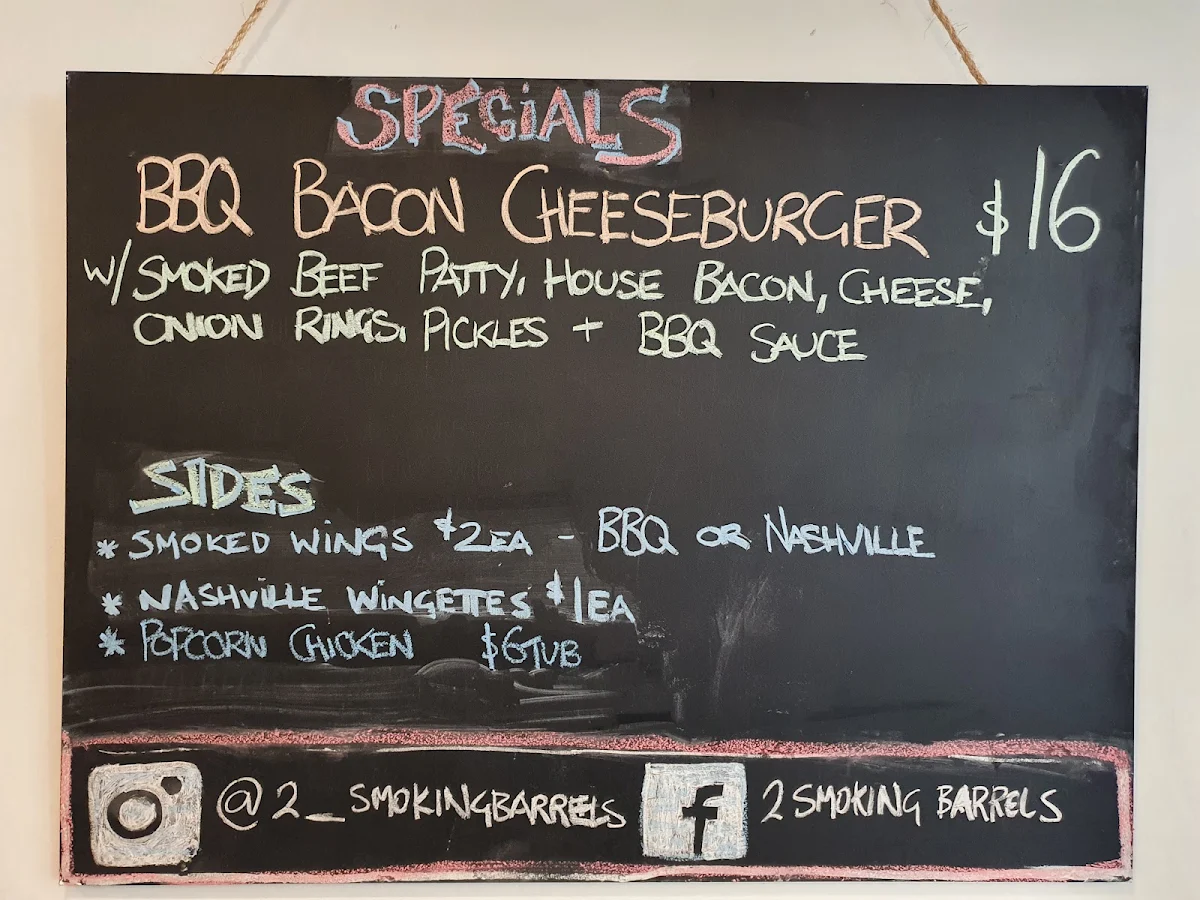 SPECiALS
BBQ BACON CHEESEBURGER $16
W/ SMOKED BEEF PATTY, HOUSE BACON, CHEESE,
ONION RINGS, PICKLES + BBQ SAUCE
SIDES
* SMOKED WINGS $2EA - BBQ OR NASHVILLE
* NASHVILLE WINGETTES $1EA
* POPCORN CHICKEN $6TUB
@2_SMOKINGBARRELS f 2SMOKING BARRELS